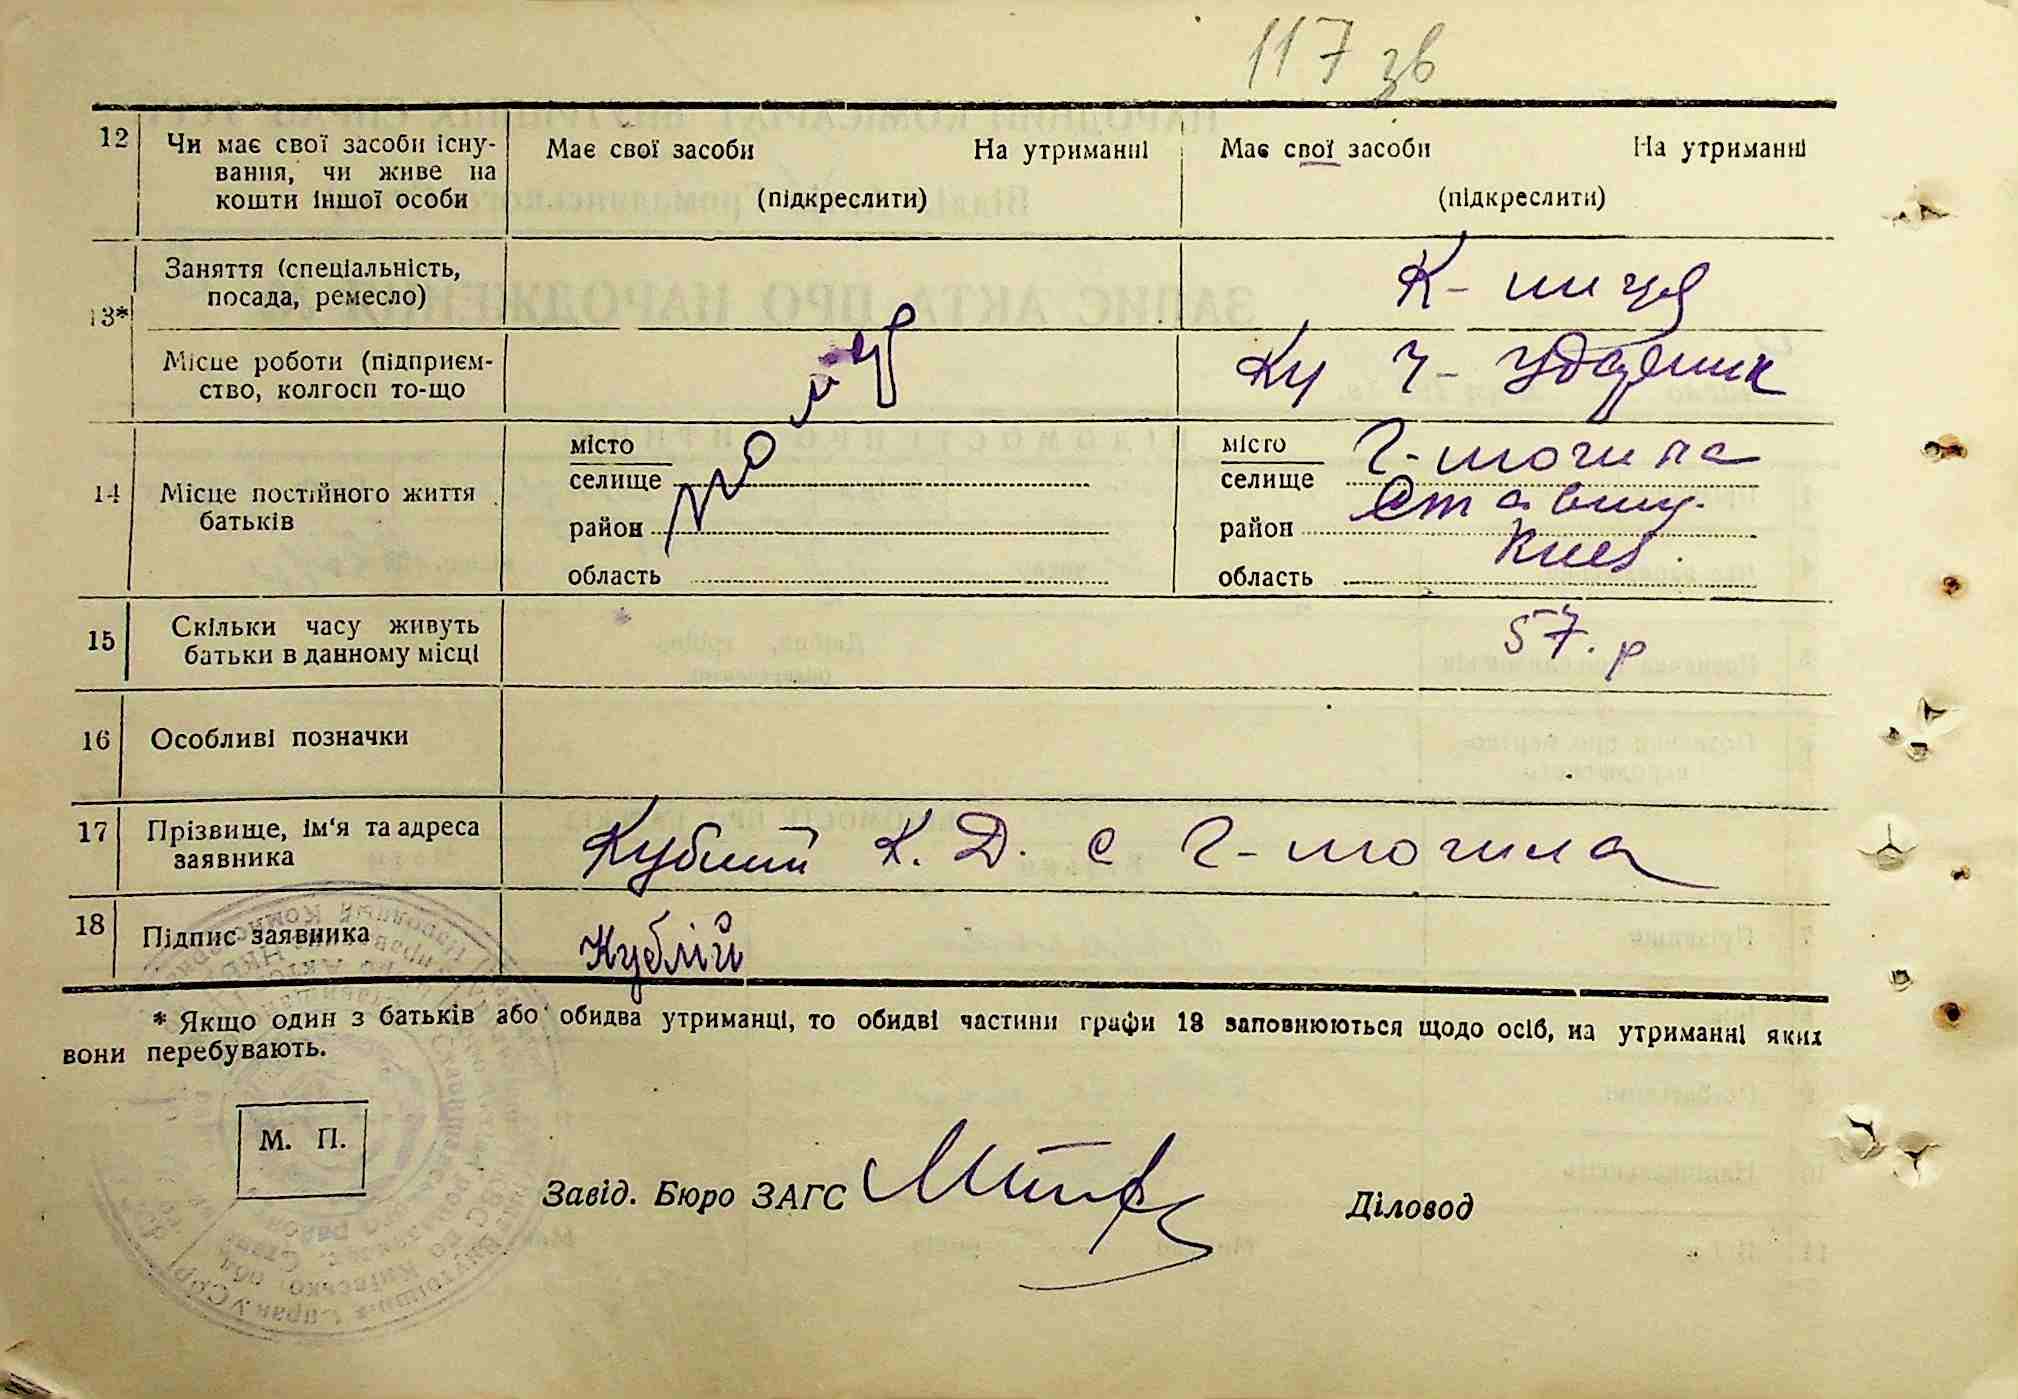 117 зв
12
Чи має свої засоби існу-
вання, чи живе на
кошти іншої особи
Має свої засоби На утриманні
(підкреслити)
Має свої засоби На утриманні
(підкреслити)
13*
Заняття (спеціальність,
посада, ремесло)
К-ниця
Місце роботи (підприєм-
ство, колгосп то-що
Ударник
14
Місце постійного життя
батьків
місто
селище
район
область
місто
селище
район
область
Г-могила
Ставищ.
Киев.
15
Скільки часу живуть
батьки в данному місці
57. р
16
Особливі позначки
17
Прізвище, ім'я та адреса
заявника
Кублій К. Д. с Г-могила
18
Підпис заявника
Кублій
* Якщо один з батьків або обидва утриманці, то обидві частини графи 13 заповнюються щодо осіб, на утриманні яких
вони перебувають.
М. П.
Завід. Бюро ЗАГС
Діловод